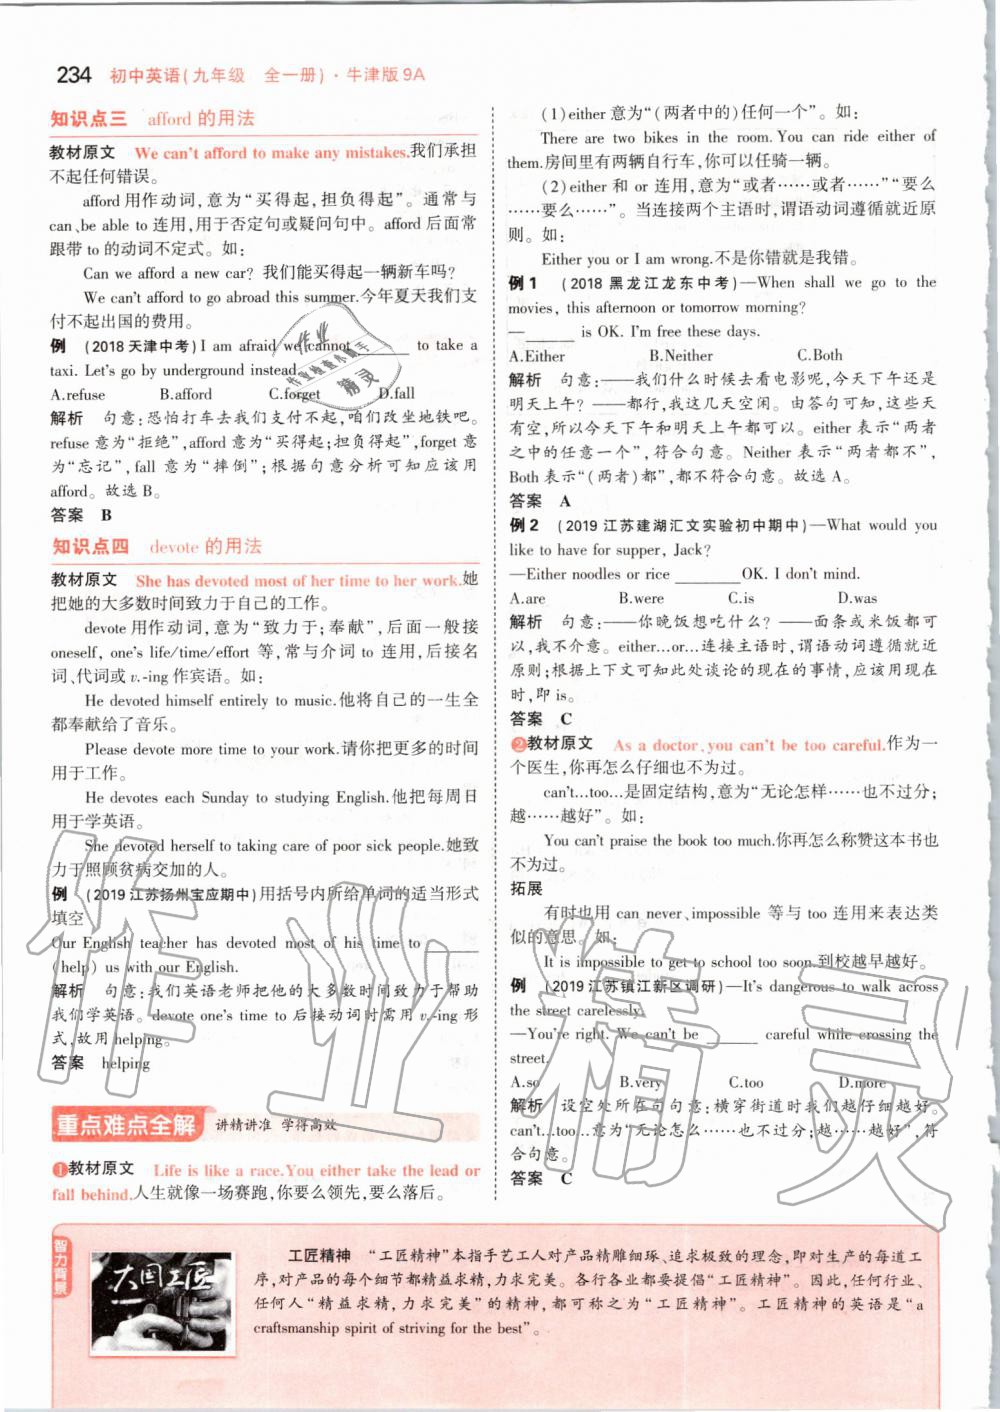 234 初中英语(九年级 全一册)·牛津版9A
知识点三 afford 的用法
教材原文 We can't afford to make any mistakes.我们承担
不起任何错误。
afford 用作动词,意为“买得起,担负得起”。通常与
can、be able to 连用,用于否定句或疑问句中。afford 后面常
跟带 to 的动词不定式。如:
Can we afford a new car? 我们能买得起一辆新车吗?
We can't afford to go abroad this summer.今年夏天我们支
付不起出国的费用。
例 (2018 天津中考) I am afraid we cannot ______ to take a
taxi. Let's go by underground instead.
A.refuse B.afford C.forget D.fall
解析 句意:恐怕打车去我们支付不起,咱们改坐地铁吧。
refuse 意为“拒绝”,afford 意为“买得起;担负得起”,forget 意
为“忘记”,fall 意为“摔倒”;根据句意分析可知应该用
afford。故选 B。
答案 B
知识点四 devote 的用法
教材原文 She has devoted most of her time to her work.她
把她的大多数时间致力于自己的工作。
devote 用作动词,意为“致力于;奉献”,后面一般接
oneself, one's life/time/effort 等,常与介词 to 连用,后接名
词、代词或 v.-ing 作宾语。如:
He devoted himself entirely to music.他将自己的一生全
都奉献给了音乐。
Please devote more time to your work.请你把更多的时间
用于工作。
He devotes each Sunday to studying English.他把每周日
用于学英语。
She devoted herself to taking care of poor sick people.她致
力于照顾贫病交加的人。
例 (2019 江苏扬州宝应期中)用括号内所给单词的适当形式
填空
Our English teacher has devoted most of his time to ______
(help) us with our English.
解析 句意:我们英语老师把他的大多数时间致力于帮助
我们学英语。devote one's time to 后接动词时需用 v.-ing 形
式,故用 helping。
答案 helping
重点难点全解 讲精讲准 学得高效
❶教材原文 Life is like a race.You either take the lead or
fall behind.人生就像一场赛跑,你要么领先,要么落后。
(1)either 意为“(两者中的)任何一个”。如:
There are two bikes in the room. You can ride either of
them.房间里有两辆自行车,你可以任骑一辆。
(2)either 和 or 连用,意为“或者……或者……”“要么
……要么……”。当连接两个主语时,谓语动词遵循就近原
则。如:
Either you or I am wrong.不是你错就是我错。
例 1 (2018 黑龙江龙东中考)—When shall we go to the
movies, this afternoon or tomorrow morning?
—______ is OK. I'm free these days.
A.Either B.Neither C.Both
解析 句意:——我们什么时候去看电影呢,今天下午还是
明天上午? ——都行,我这几天空闲。由答句可知,这些天
有空,所以今天下午和明天上午都可以。either 表示“两者
之中的任意一个”,符合句意。Neither 表示“两者都不”,
Both 表示“(两者)都”,都不符合句意。故选 A。
答案 A
例 2 (2019 江苏建湖汇文实验初中期中)—What would you
like to have for supper, Jack?
—Either noodles or rice ________OK. I don't mind.
A.are B.were C.is D.was
解析 句意:——你晚饭想吃什么? ——面条或米饭都可
以,我不介意。either...or...连接主语时,谓语动词遵循就近
原则;根据上下文可知此处谈论的现在的事情,应该用现在
时,即 is。
答案 C
❷教材原文 As a doctor, you can't be too careful.作为一
个医生,你再怎么仔细也不为过。
can't...too...是固定结构,意为“无论怎样……也不过分;
越……越好”。如:
You can't praise the book too much.你再怎么称赞这本书也
不为过。
拓展
有时也用 can never、impossible 等与 too 连用来表达类
似的意思。如:
It is impossible to get to school too soon.到校越早越好。
例 (2019 江苏镇江新区调研)—It's dangerous to walk across
the street carelessly.
—You're right. We can't be ______ careful while crossing the
street.
A.so B.very C.too D.more
解析 设空处所在句句意:横穿街道时我们越仔细越好。
can't...too...意为“无论怎么……也不过分;越……越好”,符
合句意。
答案 C
智力背景
大国工匠
工匠精神 “工匠精神”本指手艺工人对产品精雕细琢、追求极致的理念,即对生产的每道工
序,对产品的每个细节都精益求精,力求完美。各行各业都要提倡“工匠精神”。因此,任何行业、
任何人“精益求精,力求完美”的精神,都可称之为“工匠精神”。工匠精神的英语是“a
craftsmanship spirit of striving for the best”。
作业
作业检查小助手
精灵
作业精灵